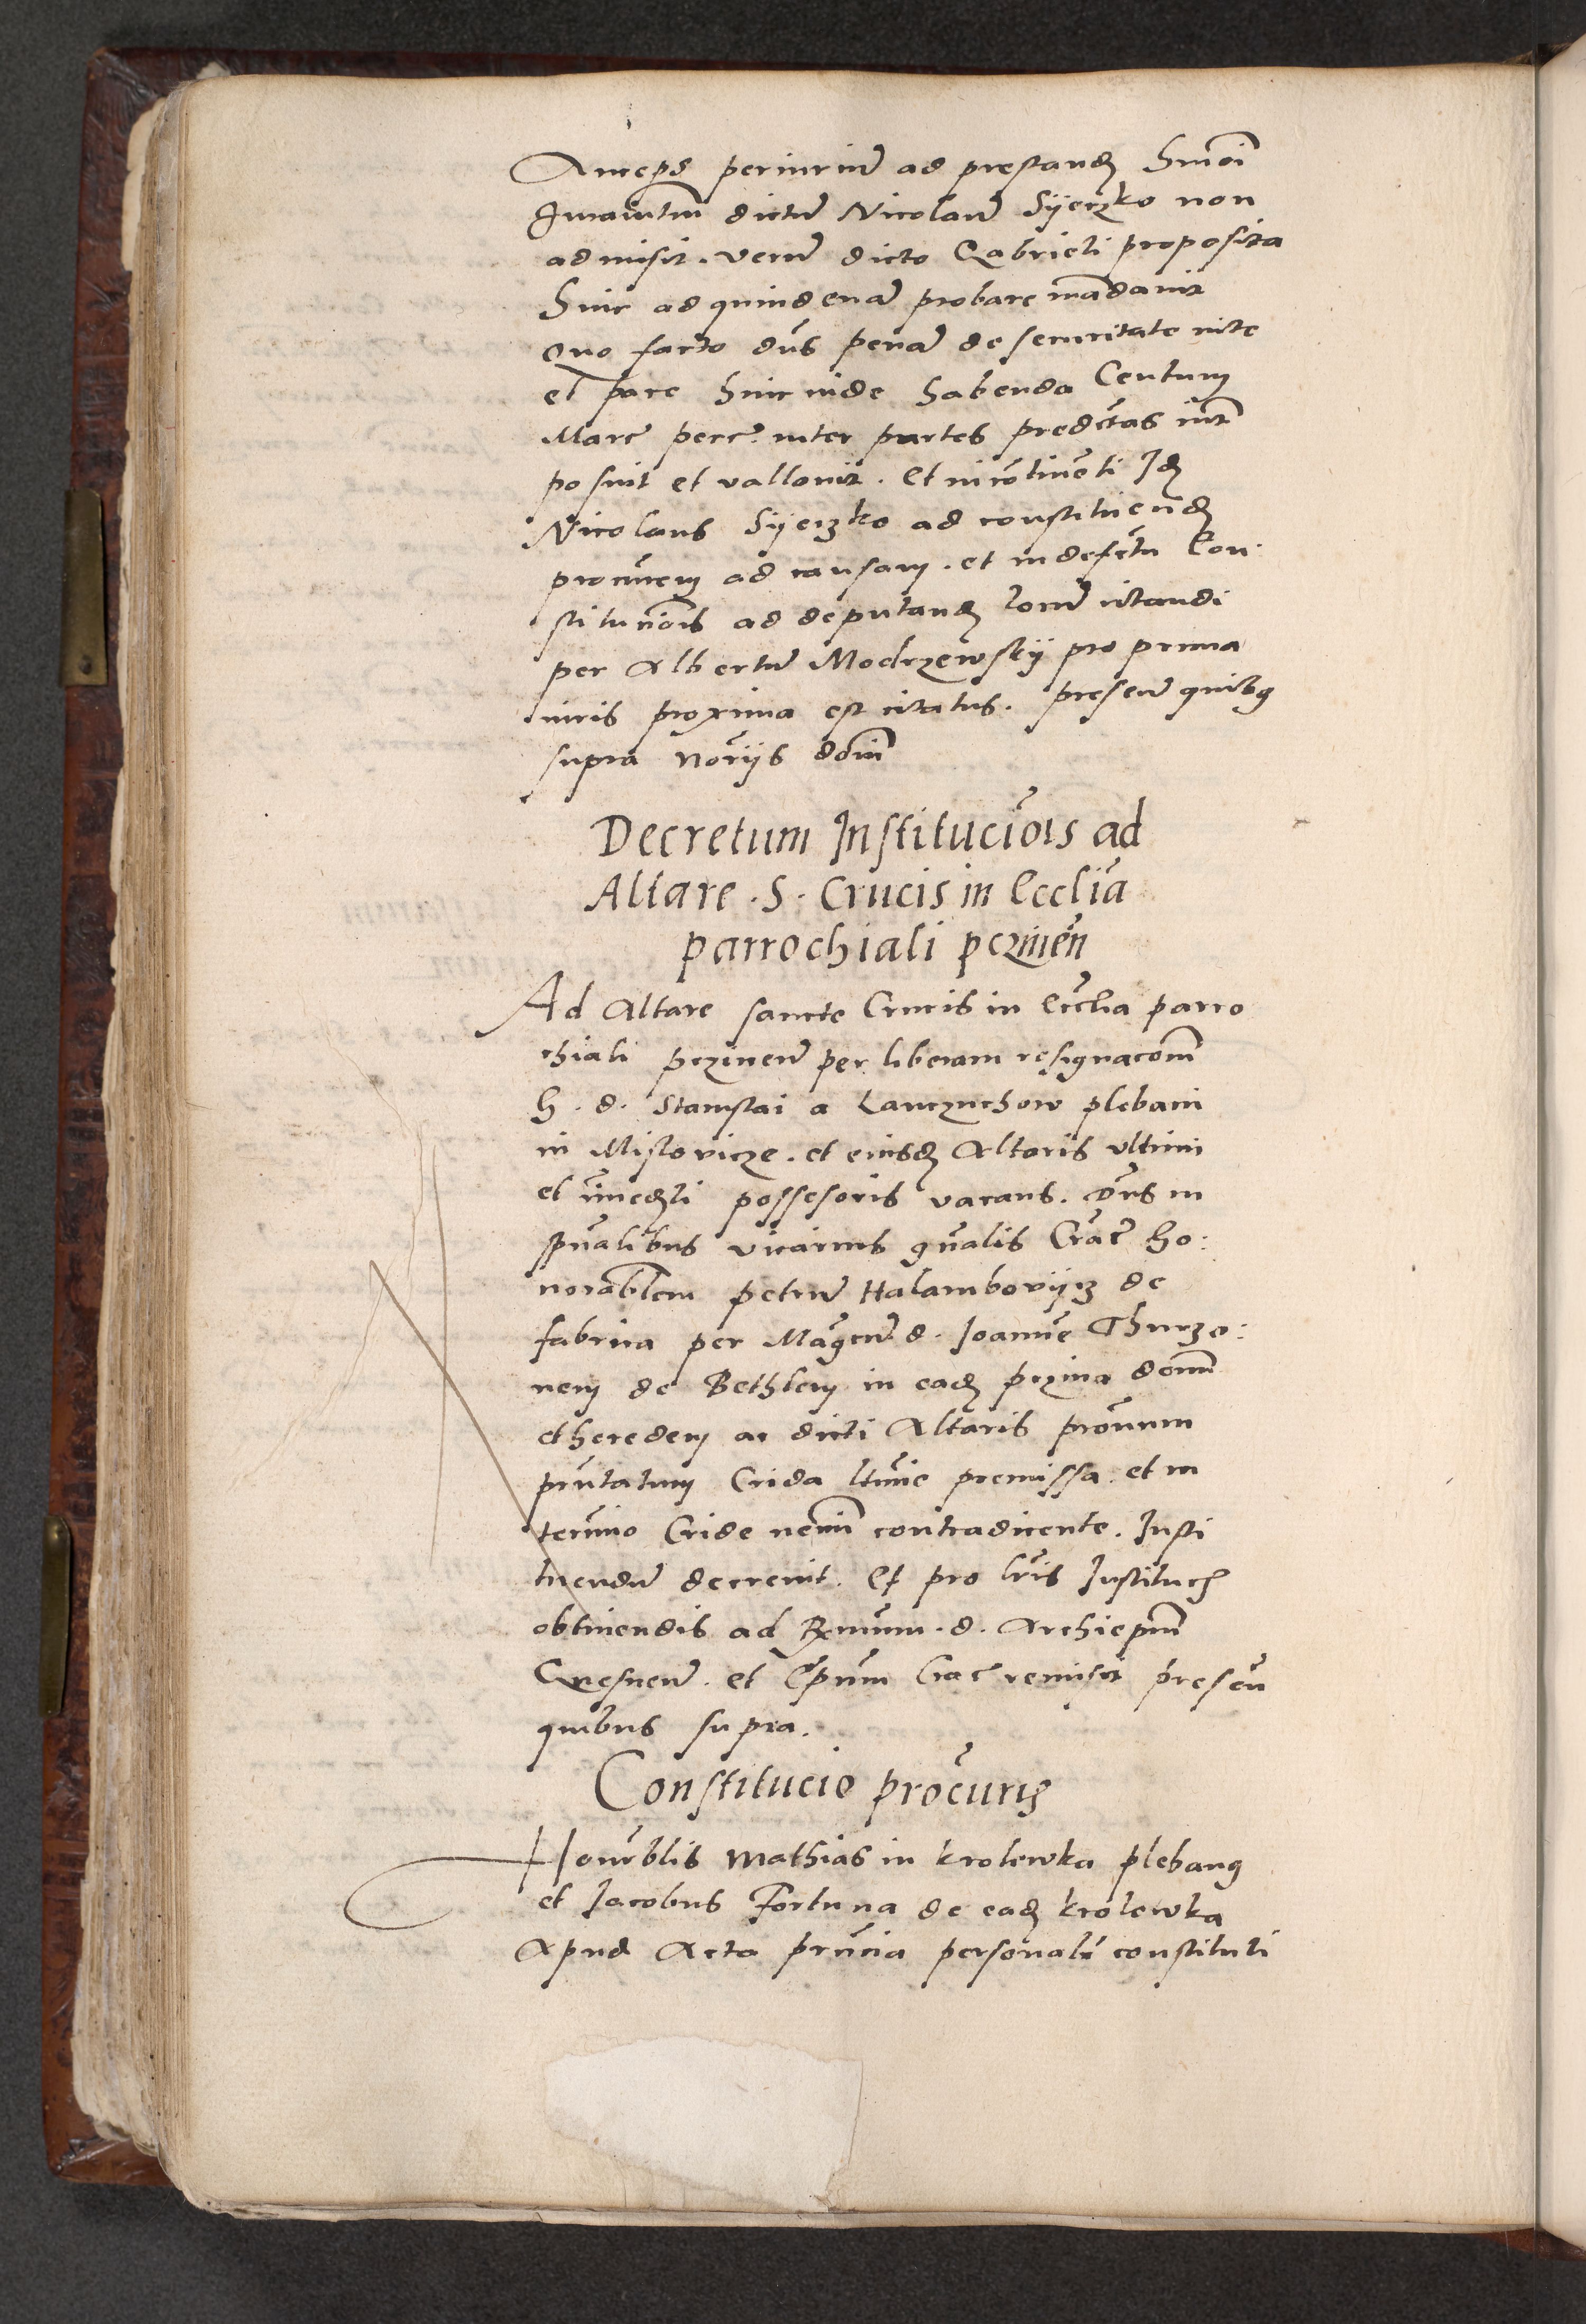 Anceps periuriu ad prestand hmoi
Juramtum dictu Nicolau Syeczko non
admisit. veru dicto Gabrieli proposita
hinc ad quindena probare mandavit
Quo facto dns pena de securitate vite
et pace hincinde habenda Centum
Marc pecc. inter partes predctas int
posuit et vallavit. Et incotineti Jd
Nicolaus Syeczko ad constituend
procurem ad causam. et in defectu Con
stitucionis ad deputand locu citandi
per Albertu Modrzewsky pro prima
iuris proxima est citatus. presen quibus
supra noriis domi
Decretum Institucois ad
Altare . S . Crucis in Ecclia
parrochiali pczinen
Ad Altare sancte Crucis in Ecclia parro
chiali pczinen per liberam resignacom
h. d. Stanislai a Lanczuchow plebani
in Mislovicze. et eiusd Altaris ultimi
et imedti possesoris vacans. Dns in
spualibus vicarius gnalis Crac ho:
norablem petru Halamboviicz de
fabrica per Magcu d. Joanne Thurzo:
nem de Bethlem in ead pczina domi
et heredem ac dicti Altaris pronum
pntatum Crida ltime premissa. et in
termino Cride nemi contradicente. Insti
tuendu decrevit. Et pro lris Institucis
obtinendis ad Rmum. d. Archiepum
Gnesnen. et Epum Crac remisit presen
quibus supra.
Constitucio procuris
Honorblis Mathias in krolewka plebanus
et Jacobus Fortuna de ead krolewka
Apud Acta pncia personalr constituti